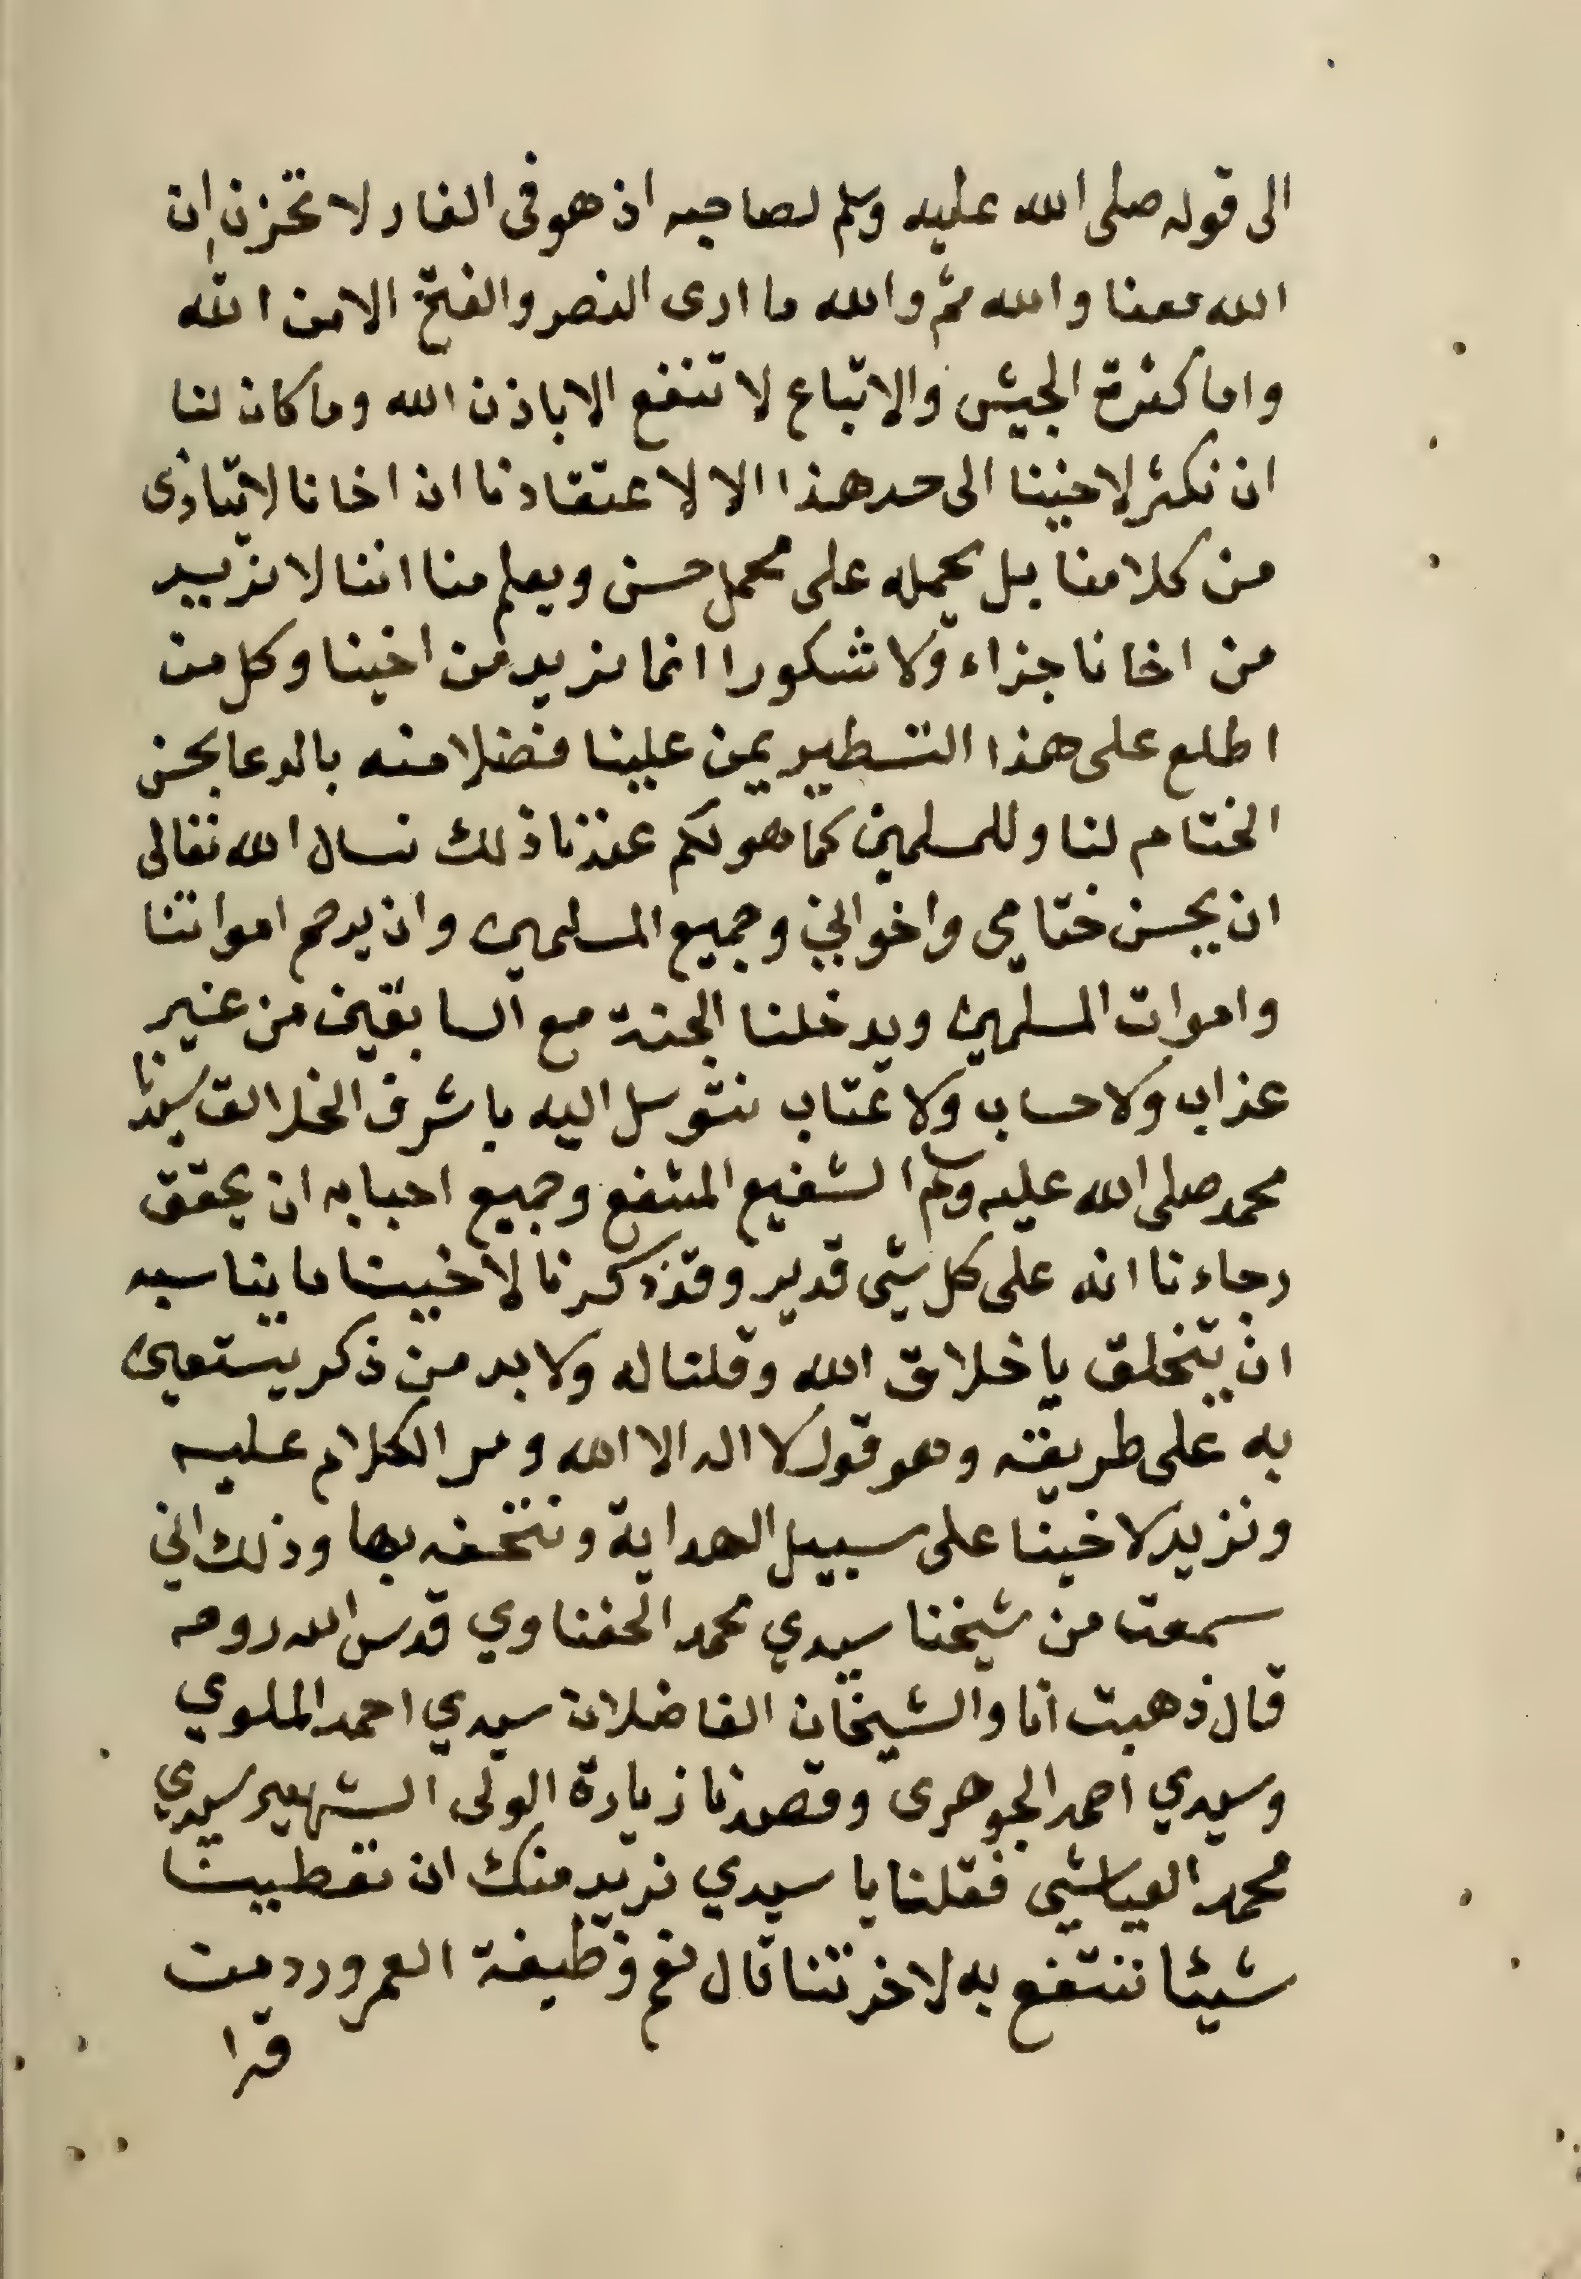 الى قوله صلى الله عليه وسلم لصاحبه اذ هو فى الغار لا تحزن ان
الله معنا والله ثم والله ما ارى النصر والفتح الا من الله
واما كثرة الجيش والاتباع لا تنفع الا باذن الله وما كان لنا
ان نكثر لاخينا الى حد هذا الا لاعتقادنا ان اخانا لا يتاذى
من كلامنا بل يحمله على محمل حسن ويعلم منا اننا لا نريد
من اخانا جزاء ولا شكورا انما نريد من اخينا وكل من
اطلع على هذا التسطير يمن علينا فضلا منه بالدعا بحسن
الختام لنا وللمسلمين كما هو لكم عندنا ذلك نسال الله تعالى
ان يحسن ختامي واخواني وجميع المسلمين وان يرحم امواتنا
واموات المسلمين ويدخلنا الجنة مع السابقين من غير
عذاب ولا حساب ولا عتاب نتوسل اليه باشرف الخلائق سيدنا
محمد صلى الله عليه وسلم الشفيع المشفع وجميع احبابه ان يحقق
رجاءنا انه على كل شئ قدير وقد ذكرنا لاخينا ما يناسبه
ان يتخلق باخلاق الله وقلنا له ولا بد من ذكر يستعين
به على طريقته وهو قول لا اله الا الله ومر الكلام عليه
ونزيد لاخينا على سبيل الهداية ونتحفه بها وذلك اني
سمعت من شيخنا سيدي محمد الحفناوي قدس الله روحه
قال ذهبت انا والشيخان الفاضلان سيدي احمد الملوي
وسيدي احمد الجوهرى وقصدنا زيارة الولى الشهير سيدي
محمد العياشي فقلنا يا سيدي نريد منك ان تعطينا
شيئا ننتفع به لاخرتنا قال نعم وظيفة العمر ورد من
قرا